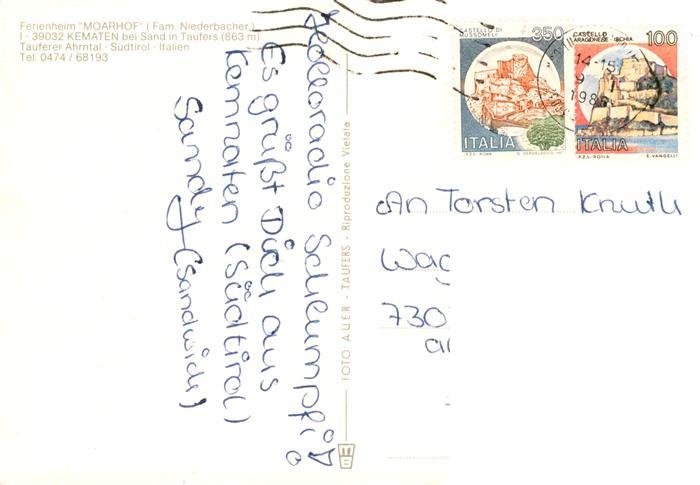 Ferienheim "MOARHOF" (Fam. Niederbacher)
I - 39032 KEMATEN bei Sand in Taufers (863 m)
Tauferer Ahrntal - Südtirol - Italien
Tel. 0474 / 68193
CASTELLO DI MUSSOMELI
350
ITALIA
I.P.Z.S. ROMA
CASTELLO ARAGONESE - ISCHIA
100
ITALIA
I.P.Z.S. - ROMA
E. VANGELLI
14-15
9
198
Helloradio Schlumpfi
Es grüßt Dich aus
Kemnaten (Südtirol)
Sandy (Sandwich)
FOTO AUER - TAUFERS - Riproduzione Vietata
An Torsten Knuth
Wag
730